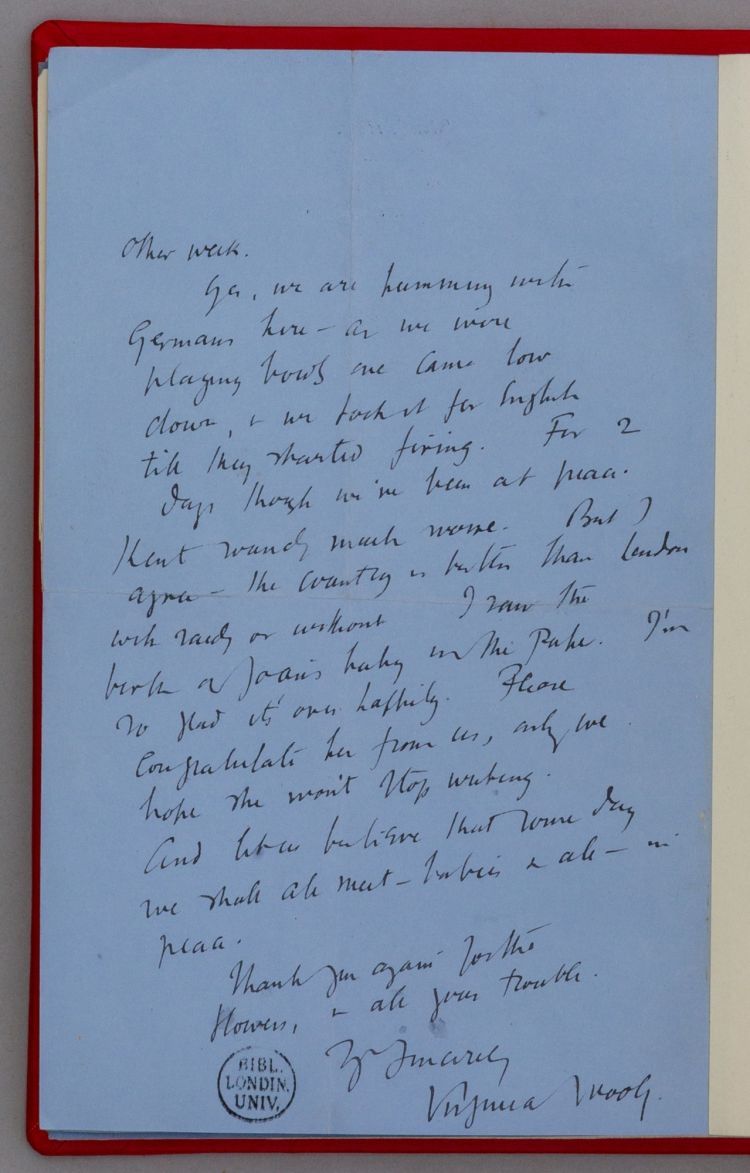 other week.
Yes, we are humming with
Germans here – as we were
playing bowls one came low
down, & we took it for English
till they started firing. For 2
days though we've been at peace.
Kent sounds much worse. But I
agree – the country is better than London
with raids or without I saw the
birth of Joan's baby in the Paper. I'm
so glad it's over happily. Please
congratulate her from us, only we
hope she won't stop writing.
And let us believe that some day
we shall all meet – babies & all – in
peace.
Thank you again for the
flowers, & all your trouble.
Yr sincerely
Virginia Woolf.
BIBL.
LONDIN.
UNIV.